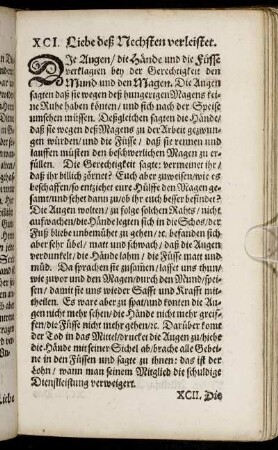 XCI. Liebe deß Nechsten verleistet.
DJe Augen/ die Hände und die Füsse
verklagten bey der Gerechtigkeit den
Mund und den Magen. Die Augen
sagten daß sie wegen deß hungerigen Magens keine
Ruhe haben könten/ und sich nach der Speise
umsehen müssen. Deßgleichen sagten die Hände/
daß sie wegen deß Magens zu der Arbeit gezwungen
würden/ und die Füsse/ daß sie rennen und
lauffen müsten den beschwerlichen Magen zu erfüllen.
Die Gerechtigkeit sagte: vermeinet ihr/
daß ihr billich zörnet? Euch aber zuweisen/ wie es
beschaffen/ so entziehet eure Hülffe dem Magen gesamt/
und sehet dann zu/ ob ihr euch besser befindet?
Die Augen wolten/ zu folge solchen Rahts/ nicht
aufwachen/ die Hände legten sich in die Schos/ der
Fuß bliebe unbemühet zu gehen/ ec. befanden sich
aber sehr übel/ matt und schwach/ daß die Augen
verdunkelt/ die Hände lahm/ die Füsse matt und
müd. Da sprachen sie zusamen/ lasset uns thun/
wie zuvor und den Magen/ durch den Mund/ speisen/
damit sie uns wieder Safft und Krafft mittheilen.
Es ware aber zu spat/ und konten die Augen
nicht mehr sehen/ die Hände nicht mehr greiffen/
die Füsse nicht mehr gehen/ ec. Darüber komt
der Tod in das Mittel/ drucket die Augen zu/ hiebe
die Hände mit seiner Sichel ab/ brache alle Gebeine
in den Füssen und sagte zu ihnen: das ist der
Lohn/ wann man seinem Mitglied die schuldige
Dienstleistung verweigert.
XCII. Die